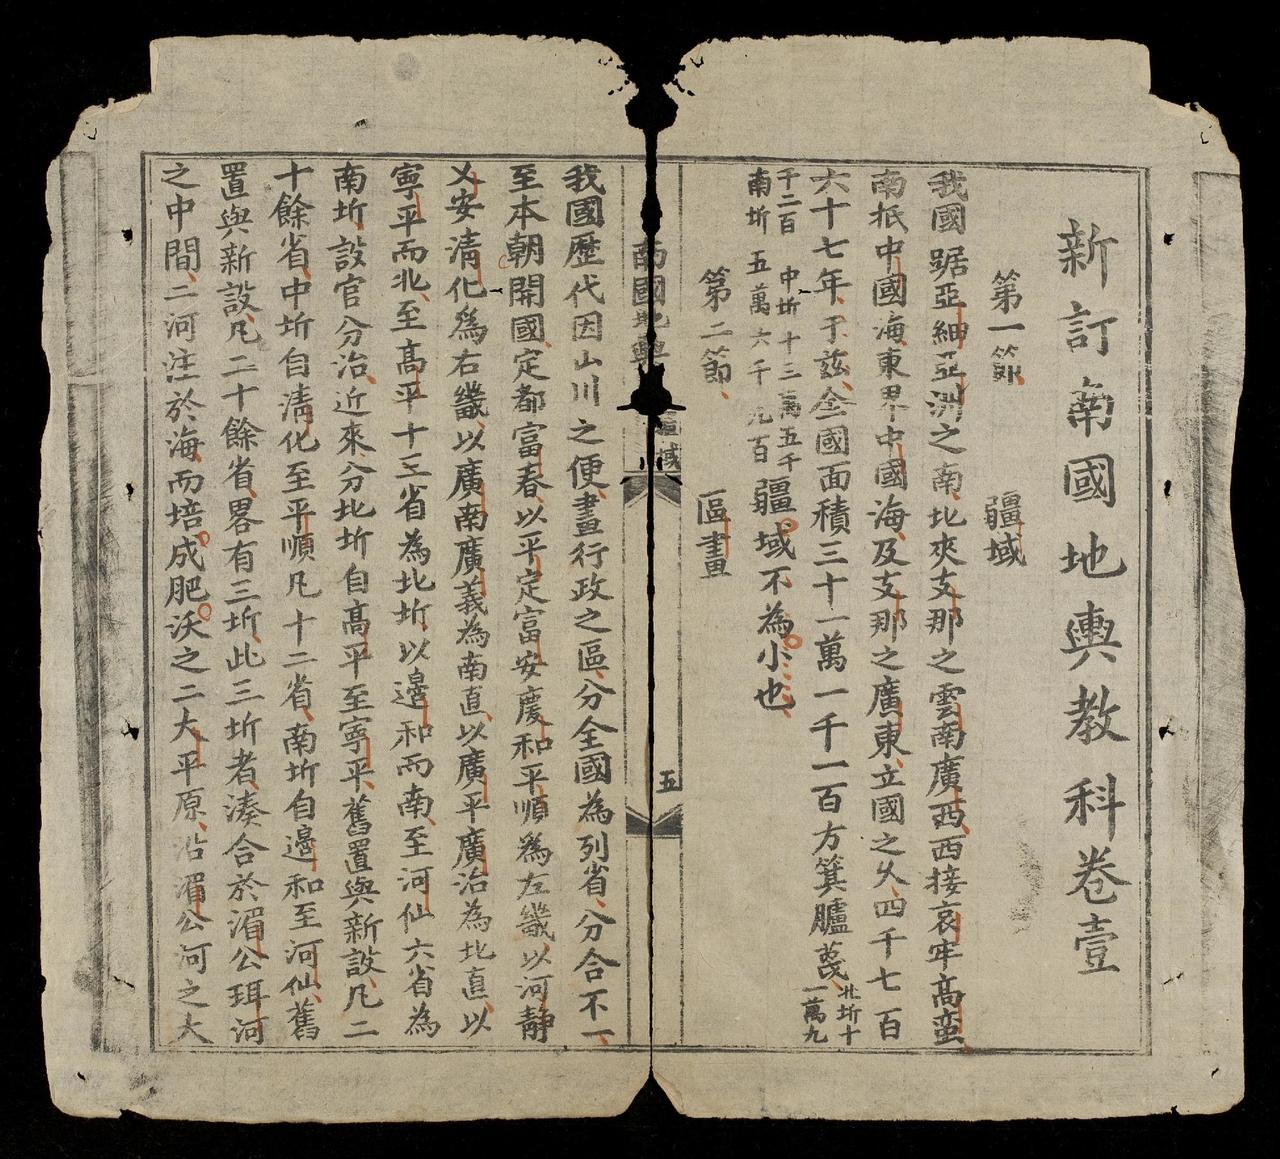 新訂南國地輿教科卷壹
第一節 疆域
我國踞亞細亞洲之南北夾支那之雲南廣西西接哀牢高蛮
南抵中國海東界中國海及支那之廣東立國之久四千七百
六十七年于茲全國面積三十一萬一千一百方箕臚蓂
北圻十一萬九
千二百 中圻十三萬五千
南圻五萬六千九百
疆域不為小也
第二節 區畫
南國地輿 疆域 五
我國歷代因山川之便畫行政之區分全國為列省分合不一
至本朝開國定都富春以平定富安慶和平順為左畿以河靜
乂安清化為右畿以廣南廣義為南直以廣平廣治為北直以
寧平而北至高平十三省為北圻以邊和而南至河仙六省為
南圻設官分治近來分北圻自高平至寧平舊置與新設凡二
十餘省中圻自清化至平順凡十二省南圻自邊和至河仙舊
置與新設凡二十餘省畧有三圻此三圻者湊合於湄公珥河
之中間二河注於海而培成肥沃之二大平原沿湄公河之大